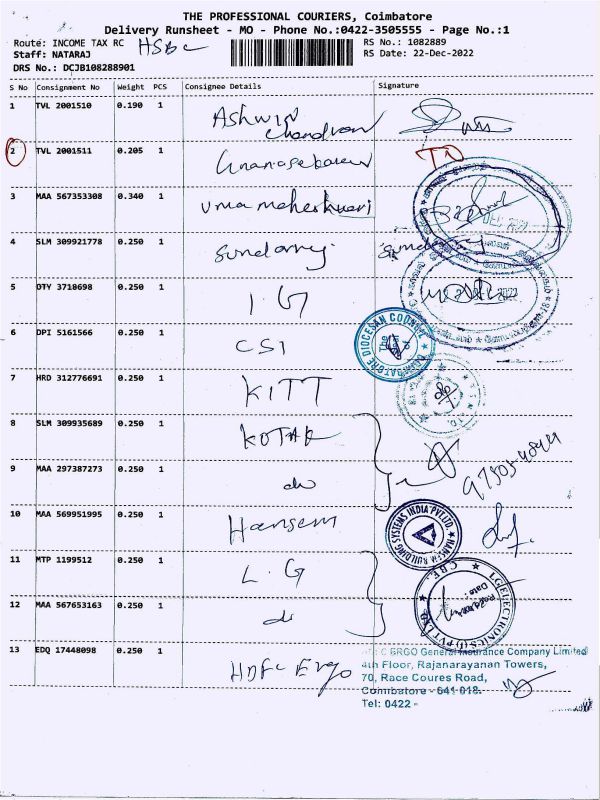 THE PROFESSIONAL COURIERS, Coimbatore
Delivery Runsheet - MO - Phone No.:0422-3505555 - Page No.:1
Route: INCOME TAX RC HSBC RS No.: 1082889
Staff: NATARAJ RS Date: 22-Dec-2022
DRS No.: DCJB108288901
S No Consignment No Weight PCS Consignee Details Signature
1 TVL 2001510 0.190 1 Ashwin Chandran
2 TVL 2001511 0.205 1 Gnanasekaran
3 MAA 567353308 0.340 1 Uma maheshwari
DEC 2022
4 SLM 309921778 0.250 1 Sundarraj Sundarraj
5 OTY 3718698 0.250 1 IG
DEC 2022
6 DPI 5161566 0.250 1 CSI
COIMBATORE DIOCESAN COUNCIL
7 HRD 312776691 0.250 1 KITT
8 SLM 309935689 0.250 1 KOTAK
9 MAA 297387273 0.250 1 do
10 MAA 569951995 0.250 1 Hansem
HANSEM BUILDING SYSTEMS INDIA PVT LTD.
11 MTP 1199512 0.250 1 L.G
LG ELECTRONICS (I) PVT LTD CBE.
Date:
12 MAA 567653163 0.250 1 do
13 EDQ 17448098 0.250 1 HDFC Ergo
ERGO General Insurance Company Limited
4th Floor, Rajanarayanan Towers,
70, Race Coures Road,
Coimbatore - 641 018.
Tel: 0422 -